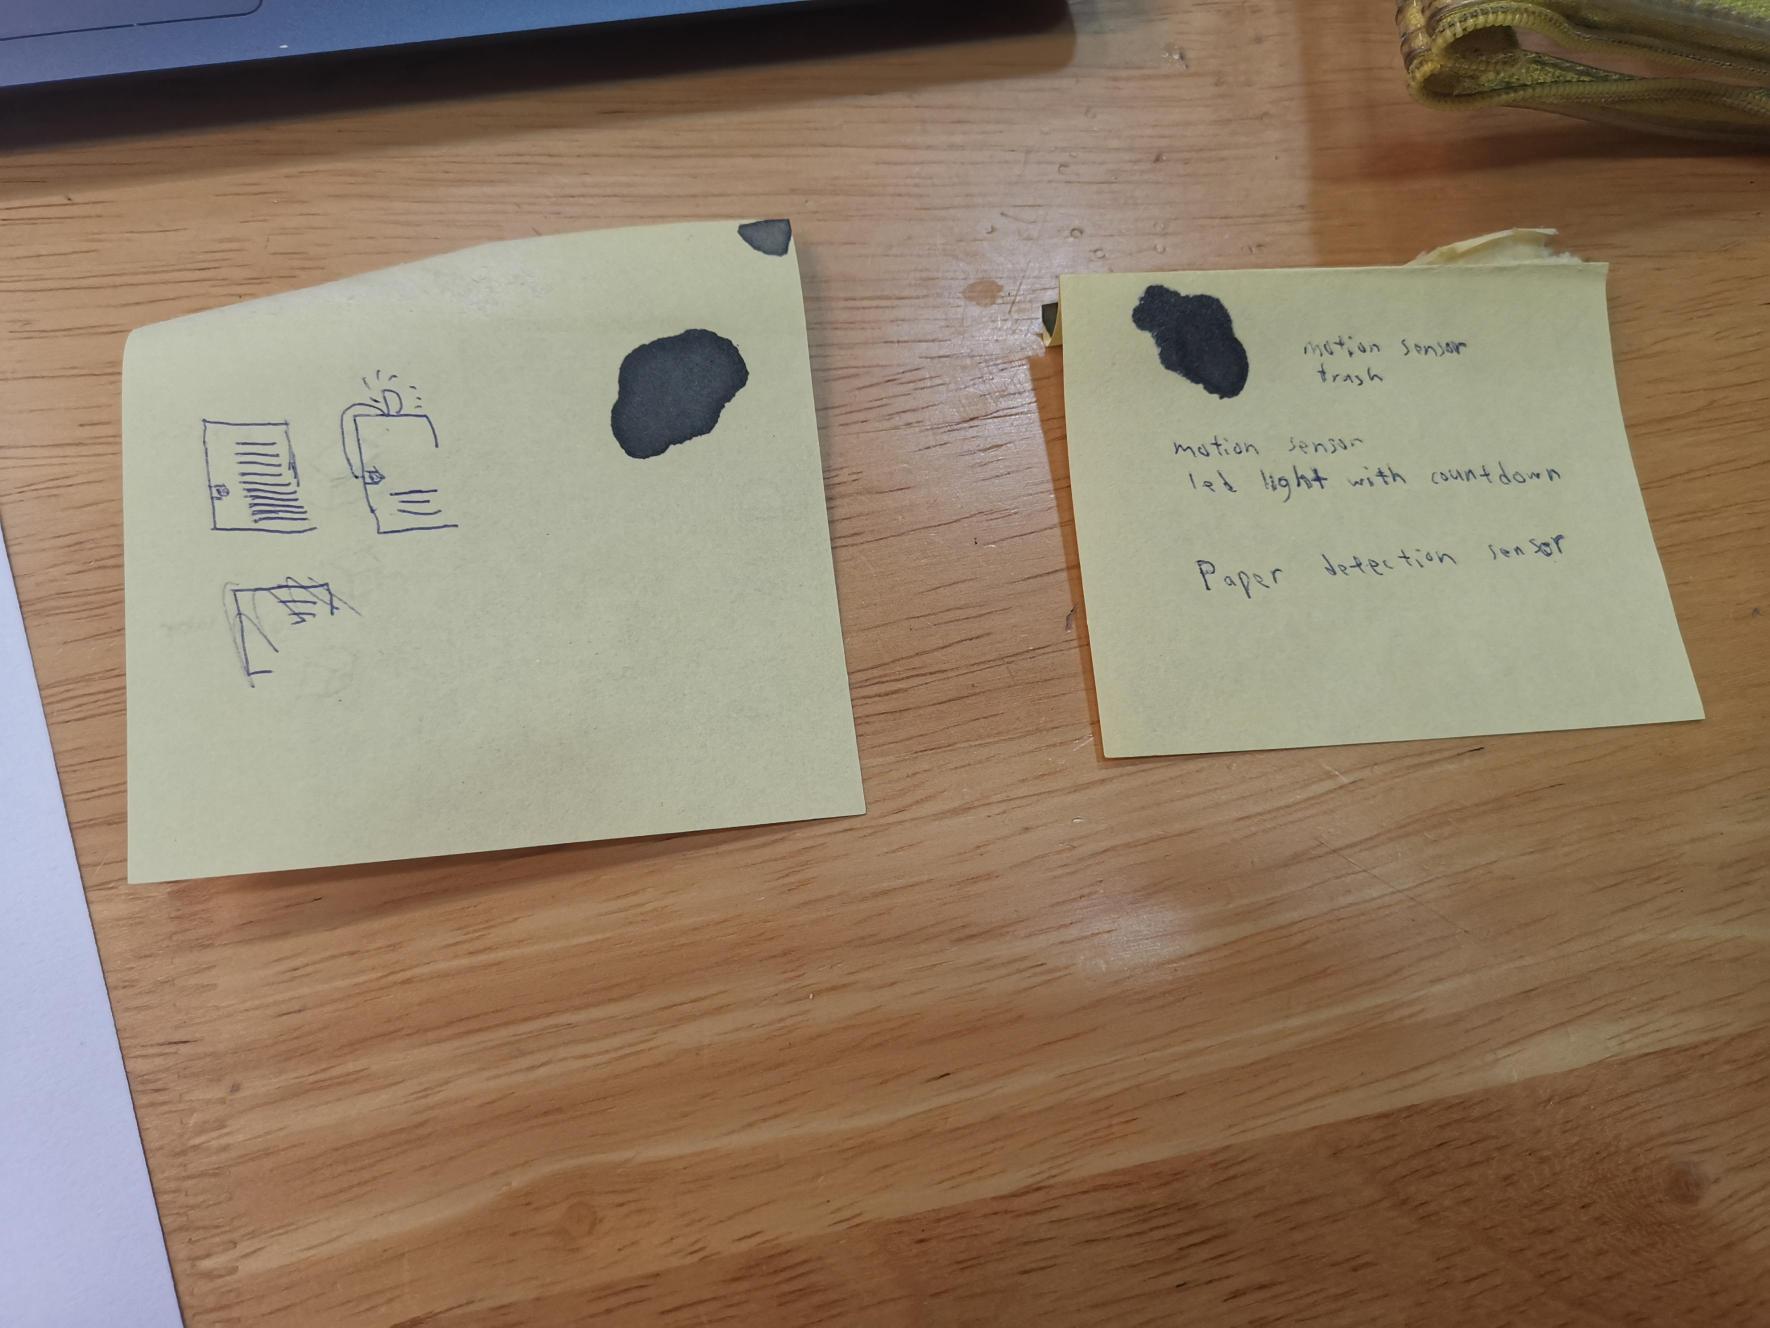 motion sensor
trash
motion sensor
led light with countdown
Paper detection sensor